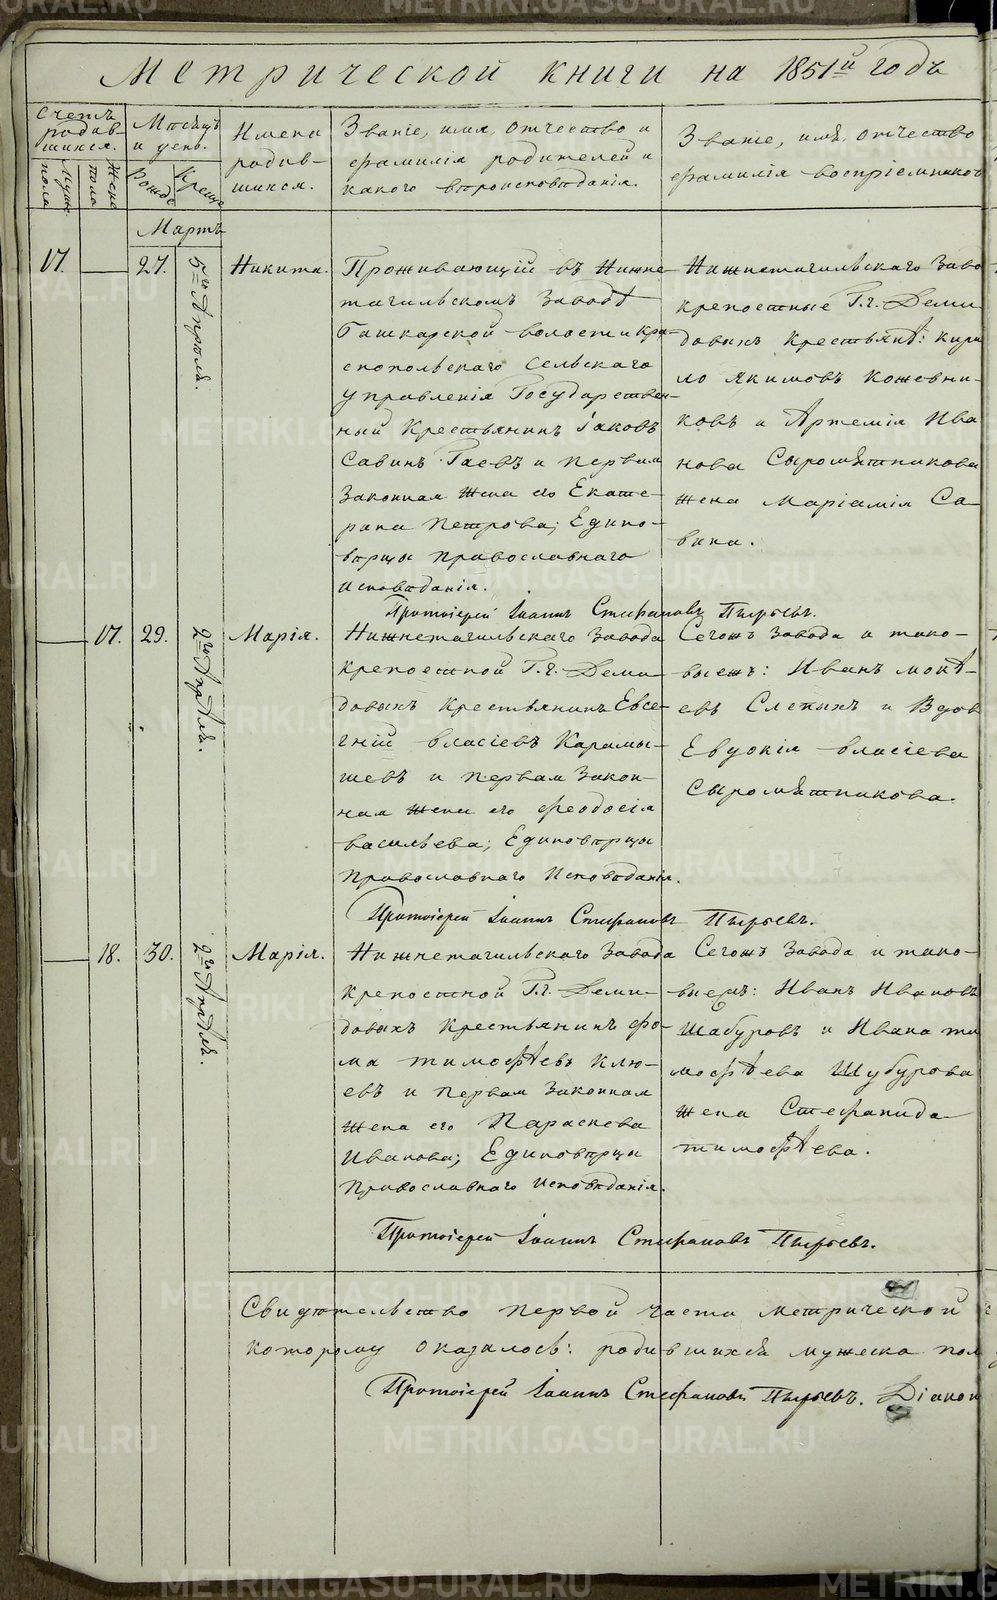 Метрической книги на 1851й годъ
Счетъ родив-шихся.
Мужес. пола
Женс. пола
Месяцъ и день.
Рожде
Креще
Имена родив-шихся.
Званіе, имя, отчество и
фамилія родителей и
какого вероисповеданія.
Званіе, имя, отчество
фамилія воспріемников
Мартъ
17. 27. 5го Апреля. Никита.
Проживающій въ Нижне-
тагильскомъ заводе
Башкарской волости и Кра-
снопольского Сельскаго
управленія Государствен-
ный Крестьянинъ Іаковъ
Савинъ Гаевъ и первая
Законная Жена его Екате-
рина Петрова; Едино-
верцы православнаго
исповеданія.
Нижнетагильскаго Заво
крепостные Г.г. Деми
довыхъ крестьяне: Кири
ло Якимовъ Кожевни-
ковъ и Артемія Ива
нова Сыромятникова
жена Маріамія Са-
вина.
Протоіерей Іоаннъ Стефановъ Пырьевъ.
17. 29. 2го Апреля. Марія.
Нижнетагильскаго Завода
крепостной Г.г. Деми-
довыхъ Крестьянинъ Евсе-
гній власіевъ Карамы-
шевъ и первая Закон-
ная Жена его Феодосія
васильева; Единоверцы
Православнаго Исповеданія.
Сегожъ Завода и тако-
выежъ: Иванъ Моке-
евъ Слепыхъ и Вдов
Евдокія власіева
Сыромятникова.
Протоіерей Іоаннъ Стефановъ Пырьевъ.
18. 30. 2го Апреля. Марія.
Нижнетагильскаго Завода
крепостной Г.г. Деми-
довыхъ Крестьянинъ Фо-
ма тимофеевъ Клю-
евъ и первая Законная
Жена его Параскева
Иванова; Единоверцы
Православнаго исповеданія.
Сегожъ Завода и тако-
выежъ: Иванъ Ивановъ
Шабуровъ и Ивана ти
мофеева Шубурова
жена Стефанида
тимофеева.
Протоіерей Іоаннъ Стефановъ Пырьевъ.
Свидетельство первой части метрической
которому оказалось: родившихся мужеска пол
Протоіерей Іоаннъ Стефановъ Пырьевъ. Діакон
METRIKI.GASO-URAL.RU